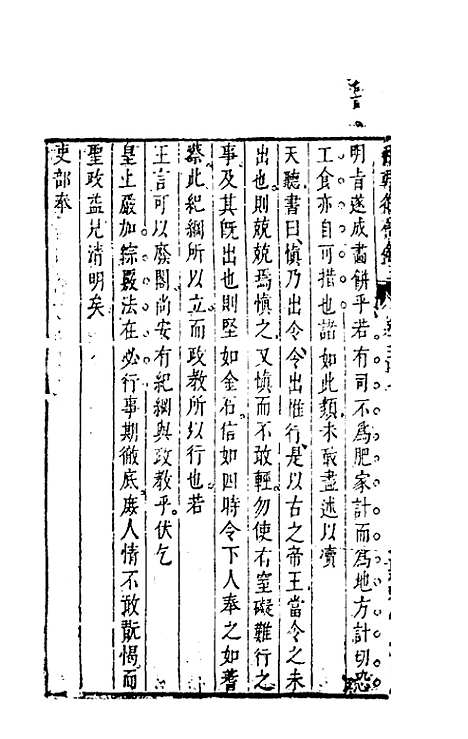 明旨遂成畵餅乎若有司不爲肥家計而爲地方計切恐
工食亦自可措也諸如此類未敢盡述以凟
天聽書曰愼乃出令令出惟行是以古之帝王當令之未
出也則兢兢焉愼之又愼而不敢輕勿使有窒礙難行之
事及其旣出也則堅如金石信如四時令下人奉之如蓍
蔡此紀綱所以立而政教所以行也若
王言可以廢閣尚安有紀綱與政教乎伏乞
皇上嚴加綜覈法在必行事期徹底庻人情不敢翫愒而
聖政益見清明矣
吏部奉